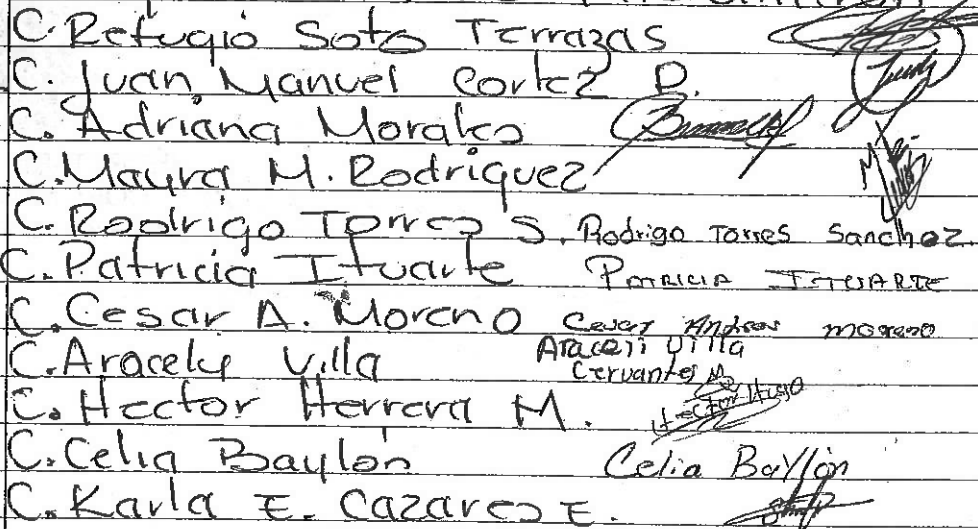 C. Refugio Soto Terrazas
C. Juan Manuel Cortez D.
C. Adriana Morales
C. Mayra M. Rodriguez
C. Rodrigo Torres S. Rodrigo Torres Sanchez
C. Patricia Ituarte PATRICIA ITUARTE
C. Cesar A. Moreno Cesar Andres moreno
C. Aracely Villa Araceli Villa
Cervantes
C. Hector Herrera M. Hector Hugo
C. Celia Baylón Celia Bayllón
C. Karla E. Cazares E.